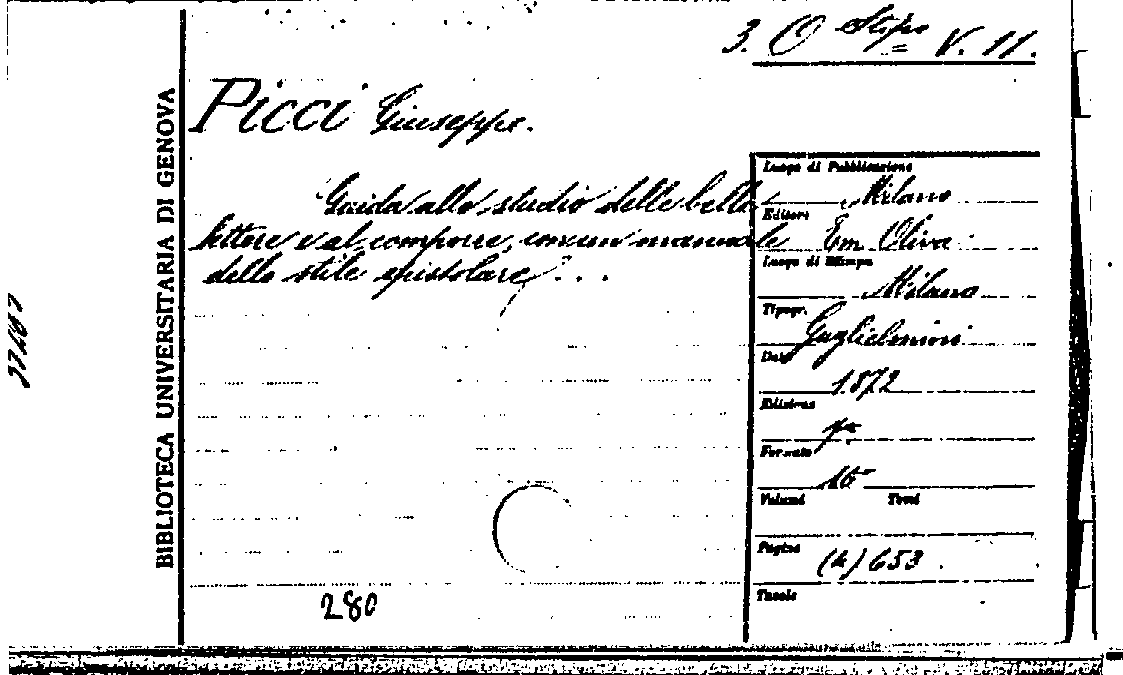 3. O Stipo V. 11.
BIBLIOTECA UNIVERSITARIA DI GENOVA
PICCI Giuseppe.
Guida allo studio delle belle
lettere e al comporre, con un manuale
dello stile epistolare . . .
Luogo di Pubblicazione
Milano
Editore
Em. Oliva
Luogo di Stampa
Milano
Tipogr.
Guglielmini
Data
1872
Edizione
Formato
16
Volumi Tomi
Pagine
653
Tavole
280